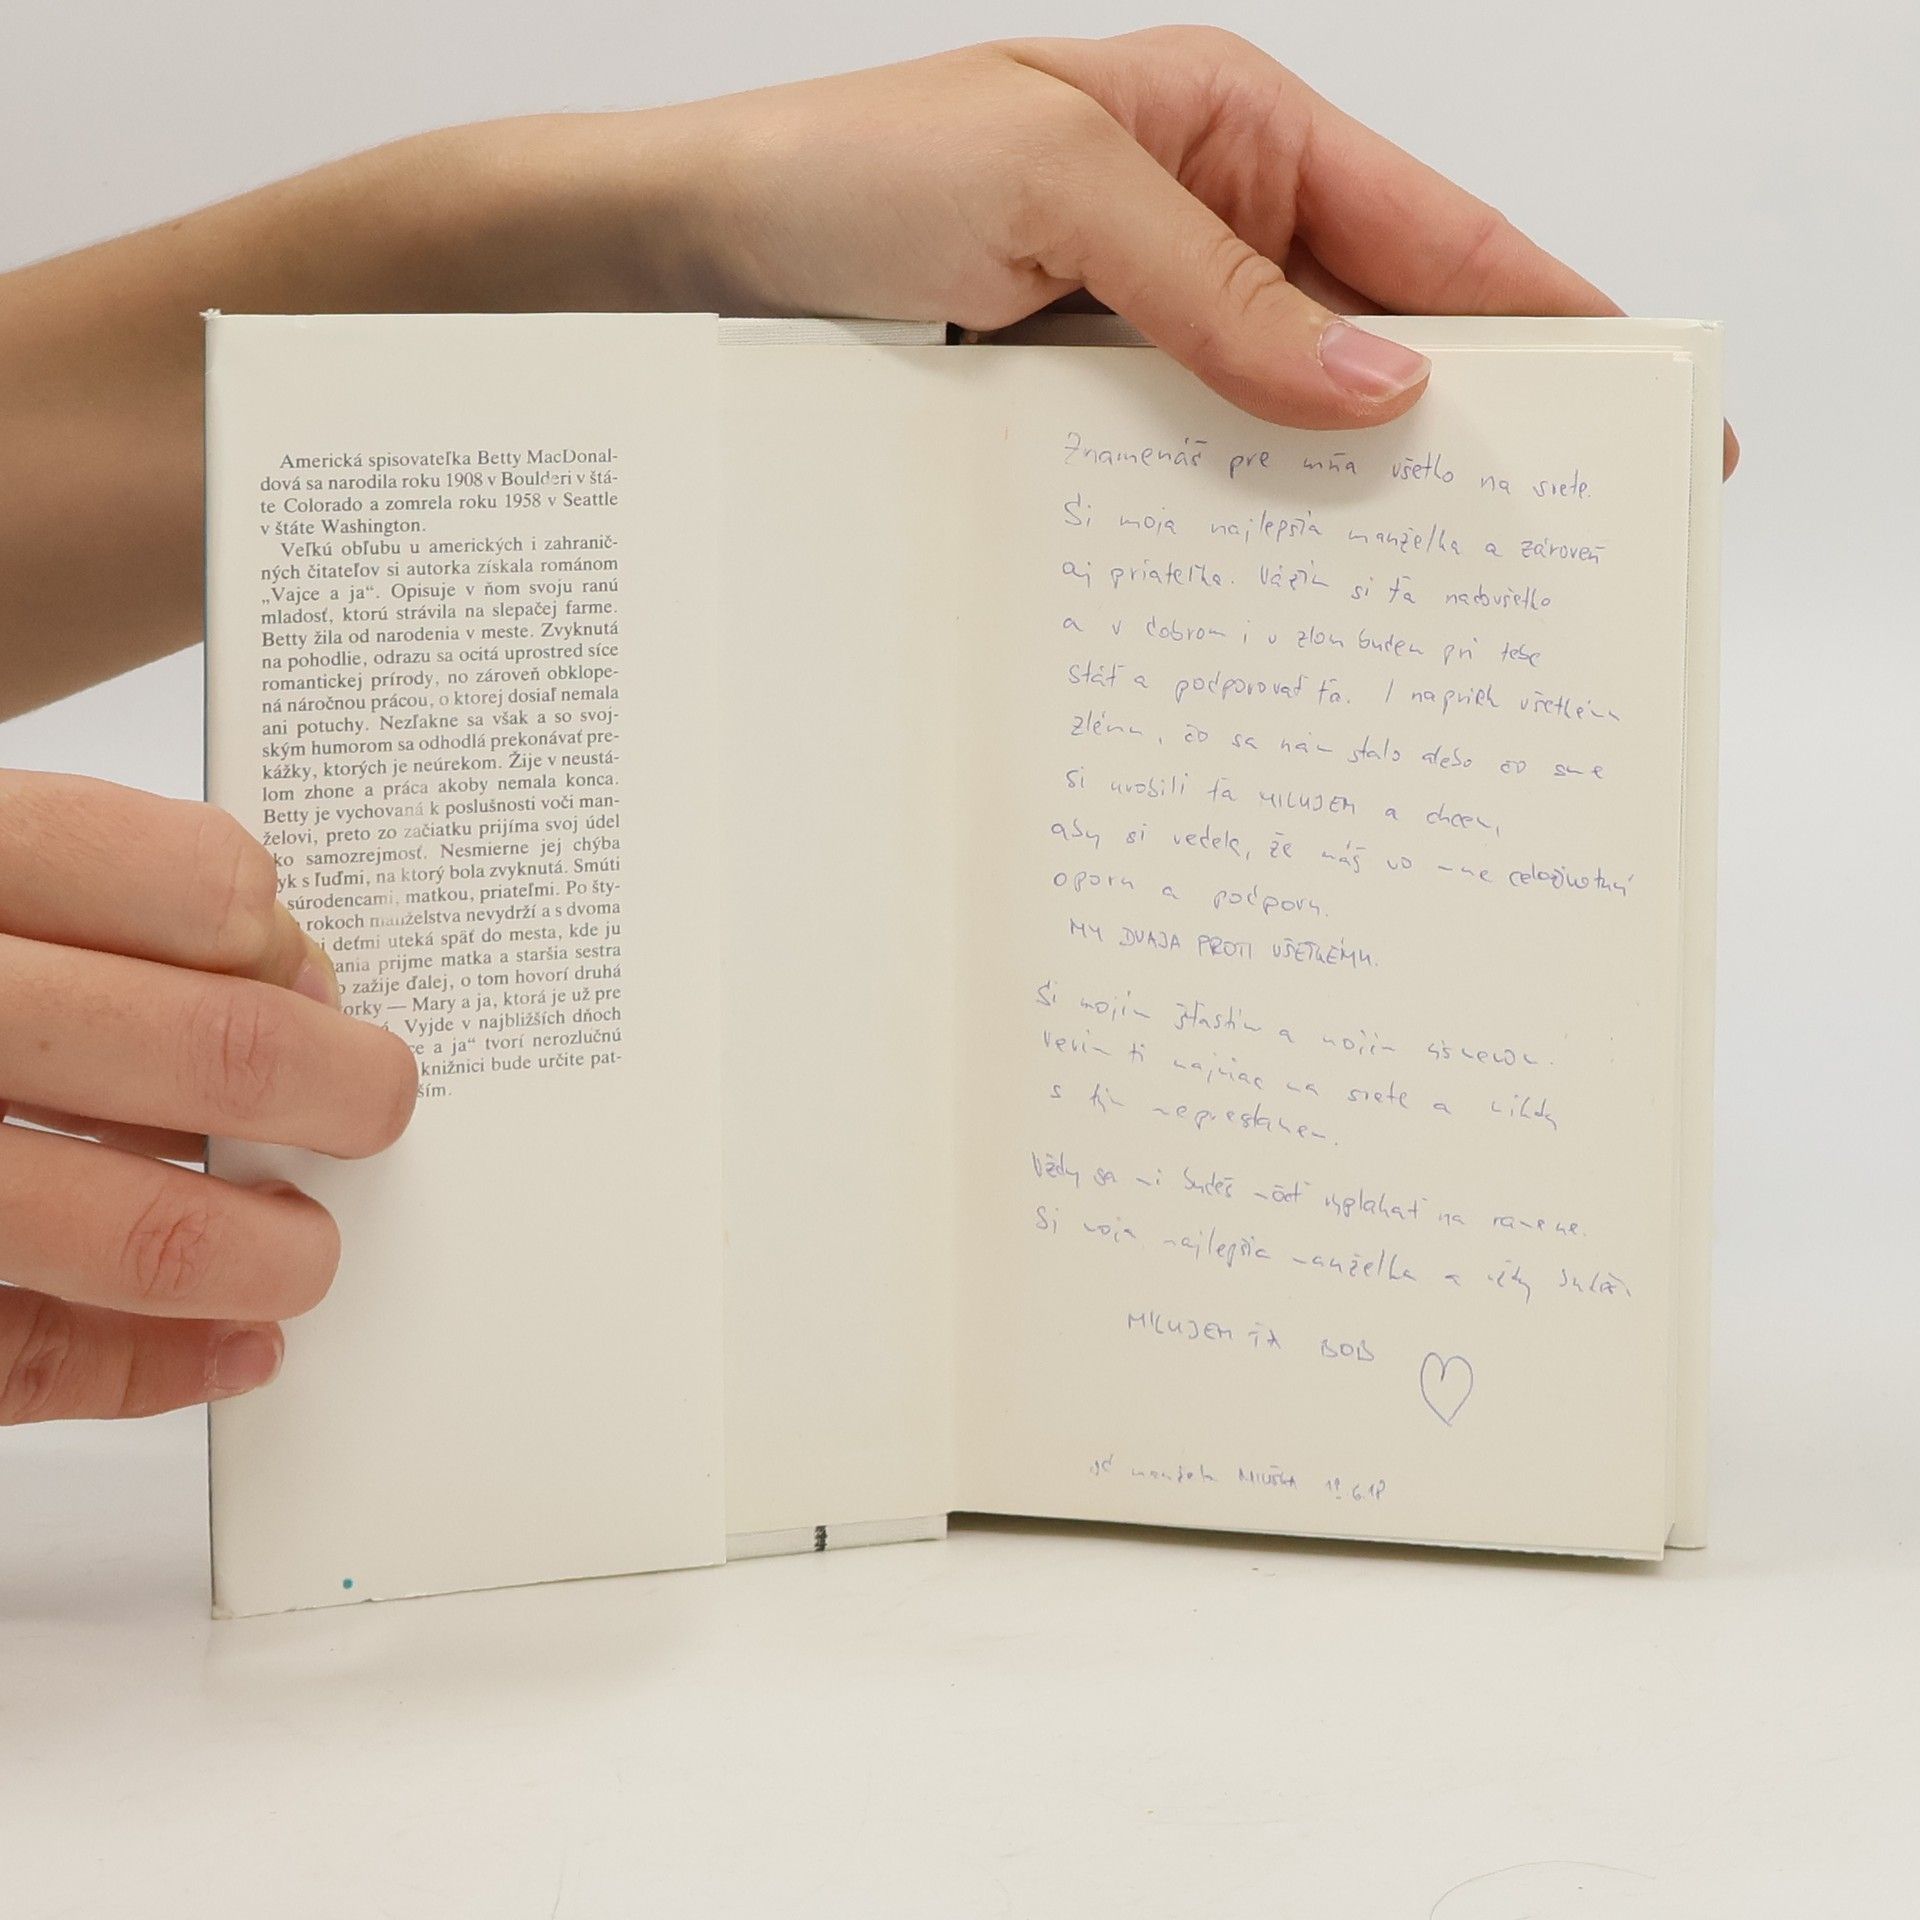 Americká spisovateľka Betty MacDonal-
dová sa narodila roku 1908 v Boulderi v štá-
te Colorado a zomrela roku 1958 v Seattle
v štáte Washington.
Veľkú obľubu u amerických i zahranič-
ných čitateľov si autorka získala románom
„Vajce a ja“. Opisuje v ňom svoju ranú
mladosť, ktorú strávila na slepačej farme.
Betty žila od narodenia v meste. Zvyknutá
na pohodlie, odrazu sa ocitá uprostred síce
romantickej prírody, no zároveň obklope-
ná náročnou prácou, o ktorej dosiaľ nemala
ani potuchy. Nezľakne sa však a so svoj-
ským humorom sa odhodlá prekonávať pre-
kážky, ktorých je neúrekom. Žije v neustá-
lom zhone a práca akoby nemala konca.
Betty je vychovaná k poslušnosti voči man-
želovi, preto zo začiatku prijíma svoj údel
ko samozrejmosť. Nesmierne jej chýba
yk s ľuďmi, na ktorý bola zvyknutá. Smúti
súrodencami, matkou, priateľmi. Po šty-
rokoch manželstva nevydrží a s dvoma
i deťmi uteká späť do mesta, kde ju
ania prijme matka a staršia sestra
o zažije ďalej, o tom hovorí druhá
orky — Mary a ja, ktorá je už pre
Vyjde v najbližších dňoch
ce a ja“ tvorí nerozlučnú
knižnici bude určite pat-
ším.
Znamenáš pre mňa všetko na svete.
Si moja najlepšia manželka a zároveň
aj priateľka. Vážim si ťa nadovšetko
a v dobrom i v zlom budem pri tebe
stáť a podporovať ťa. I napriek všetkému
zlému, čo sa nám stalo alebo čo sme
si urobili ťa MILUJEM a chcem,
aby si vedela, že máš vo mne celoživotnú
oporu a podporu.
MY DVAJA PROTI VŠETKÉMU.
Si mojím šťastím a mojím úsmevom.
Verím ti najviac na svete a nikdy
s tým neprestanem.
Vždy sa mi budeš môcť vyplakať na ramene.
Si moja najlepšia manželka a vždy budeš.
MILUJEM ŤA BOB
od manžela 19.6.18